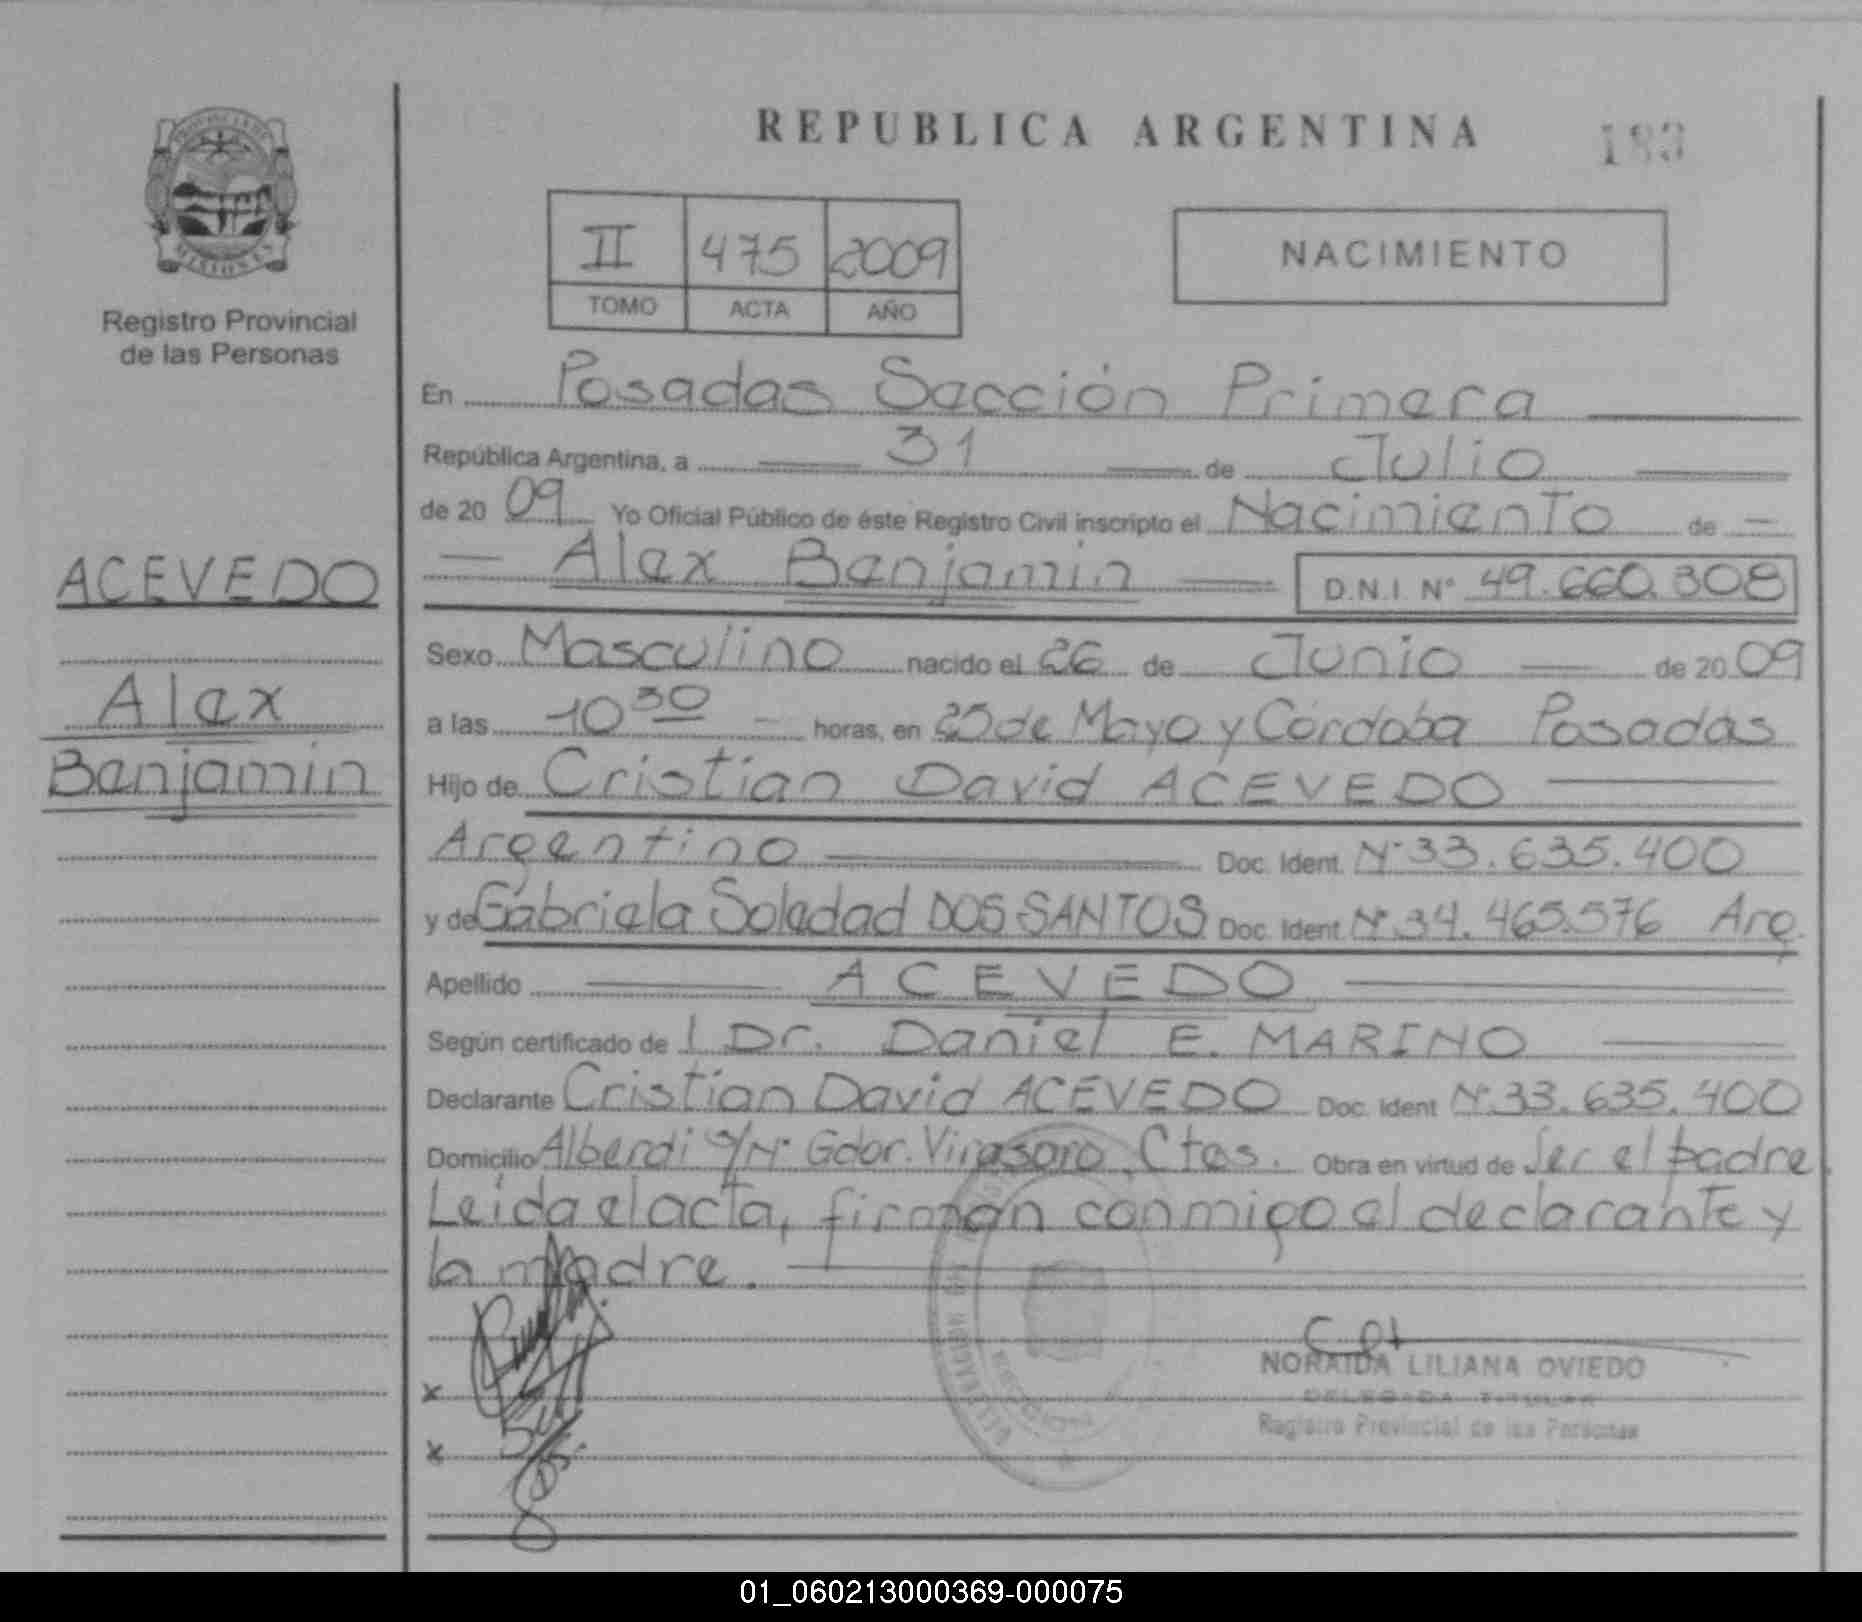 REPUBLICA ARGENTINA
183
II 475 2009
TOMO ACTA AÑO
NACIMIENTO
PROVINCIA DE
MISIONES
Registro Provincial
de las Personas
ACEVEDO
Alex
Benjamin
En Posadas Sección Primera
República Argentina, a 31 de Julio
de 20 09 Yo Oficial Público de éste Registro Civil inscripto el Nacimiento de
Alex Benjamin D.N.I. Nº 49.660.308
Sexo Masculino nacido el 26 de Junio de 20 09
a las 10 30 horas, en 25 de Mayo y Córdoba Posadas
Hijo de Cristian David ACEVEDO
Argentino Doc. Ident. Nº 33.635.400
y de Gabriela Soledad DOS SANTOS Doc. Ident. Nº 34.465.576 Arg.
Apellido ACEVEDO
Según certificado de l Dr. Daniel E. MARINO
Declarante Cristian David ACEVEDO Doc. Ident Nº 33.635.400
Domicilio Alberdi s/Nº Gdor. Virasoro, Ctes. Obra en virtud de Ser el padre.
Leída el acta, firman conmigo el declarante y
la madre.
NORAIDA LILIANA OVIEDO
DELEGADA TITULAR
Registro Provincial de las Personas
x
x
01_060213000369-000075